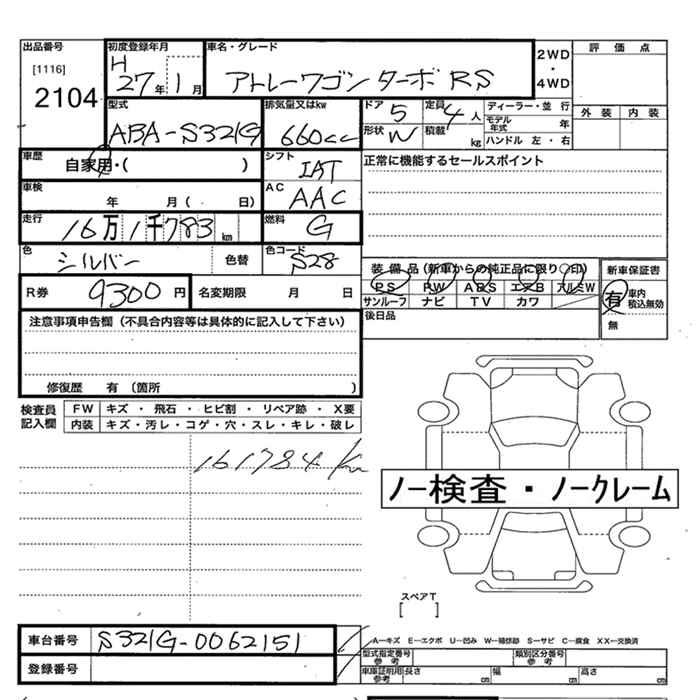 出品番号 初度登録年月 車名・グレード 2WD ・ 4WD 評価点
[1116] H
2104 27年 1月 アトレーワゴン ターボ RS
型式 排気量又はkw ドア 5 定員 4人 ディーラー・並行 外装 内装
ABA-S321G 660cc 形状 W 積載 kg モデル年式 年
ハンドル 左・右
車歴 自家用・( ) シフト IAT 正常に機能するセールスポイント
車検 年 月( 日) AC AAC
走行 16万1千783km 燃料 G
色 シルバー 色替 色コード S28
装備品(新車からの純正品に限り○印) 新車保証書
R券 9300円 名変期限 月 日 PS PW ABS エアB アルミW 有 車内積込無効
サンルーフ ナビ TV カワ 無
注意事項申告欄(不具合内容等は具体的に記入して下さい) 後日品
修復歴 有(箇所 )
検査員記入欄 FW キズ・飛石・ヒビ割・リペア跡・X要
内装 キズ・汚レ・コゲ・穴・スレ・キレ・破レ
161784km
ノー検査・ノークレーム
スペアT
[ ]
車台番号 S321G-0062151 A-キズ E-エクボ U-凹み W-補修跡 S-サビ C-腐食 XX-交換済
登録番号 型式指定番号 参考 類別区分番号 参考
車庫証明用 参考 長さ cm 幅 cm 高さ cm